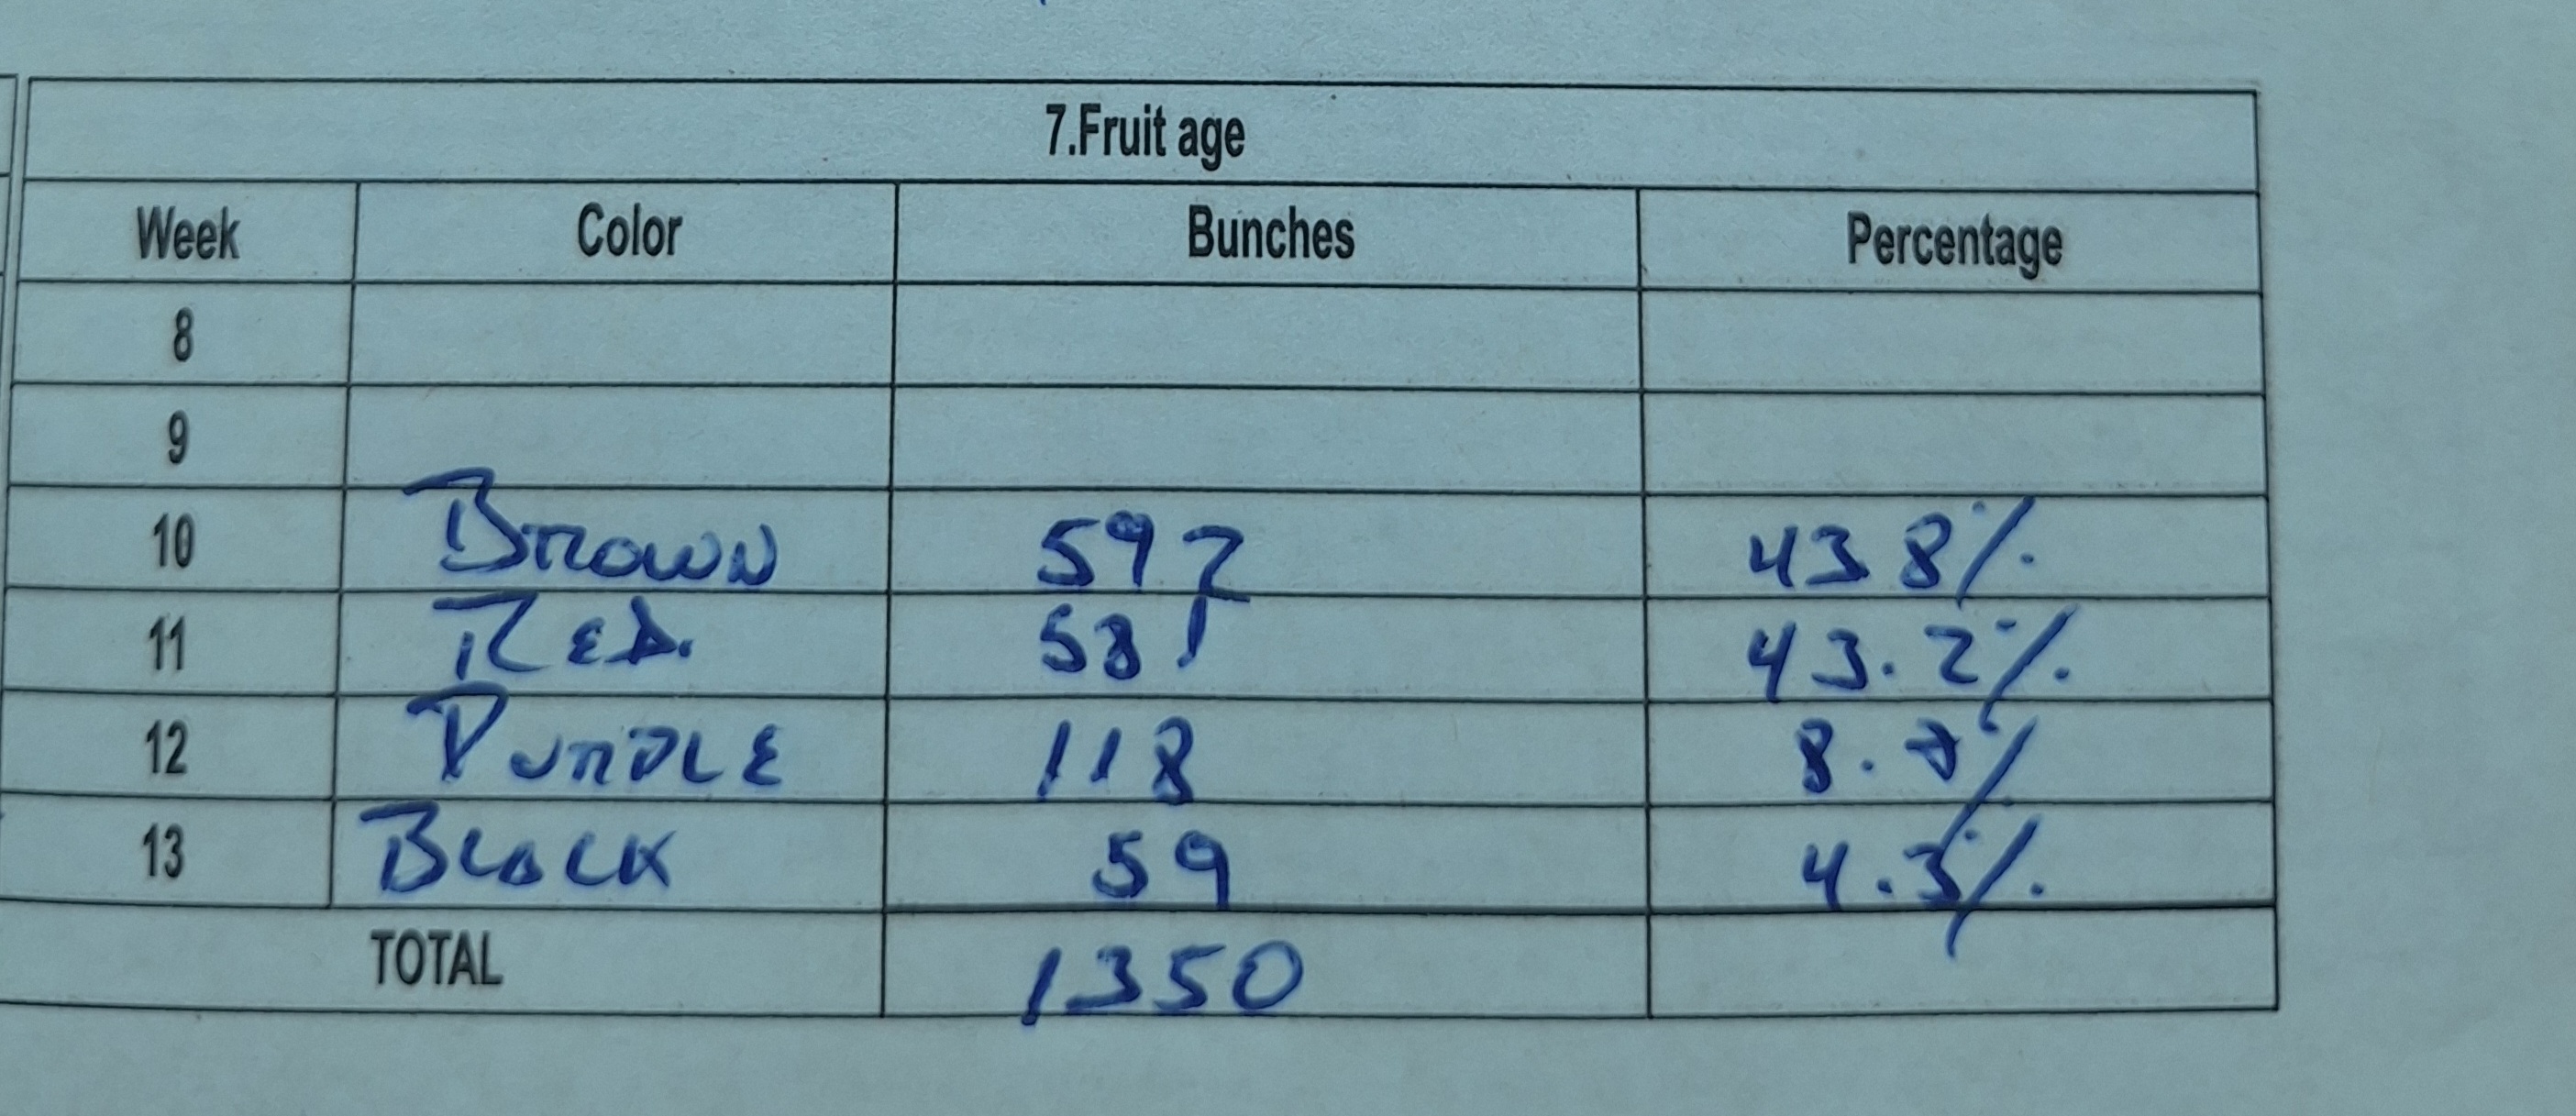 7.Fruit age
Week Color Bunches Percentage
8
9
10 Brown 592 43.8%
11 Red. 581 43.2%
12 Purple 118 8.7%
13 Black 59 4.3%
TOTAL 1350